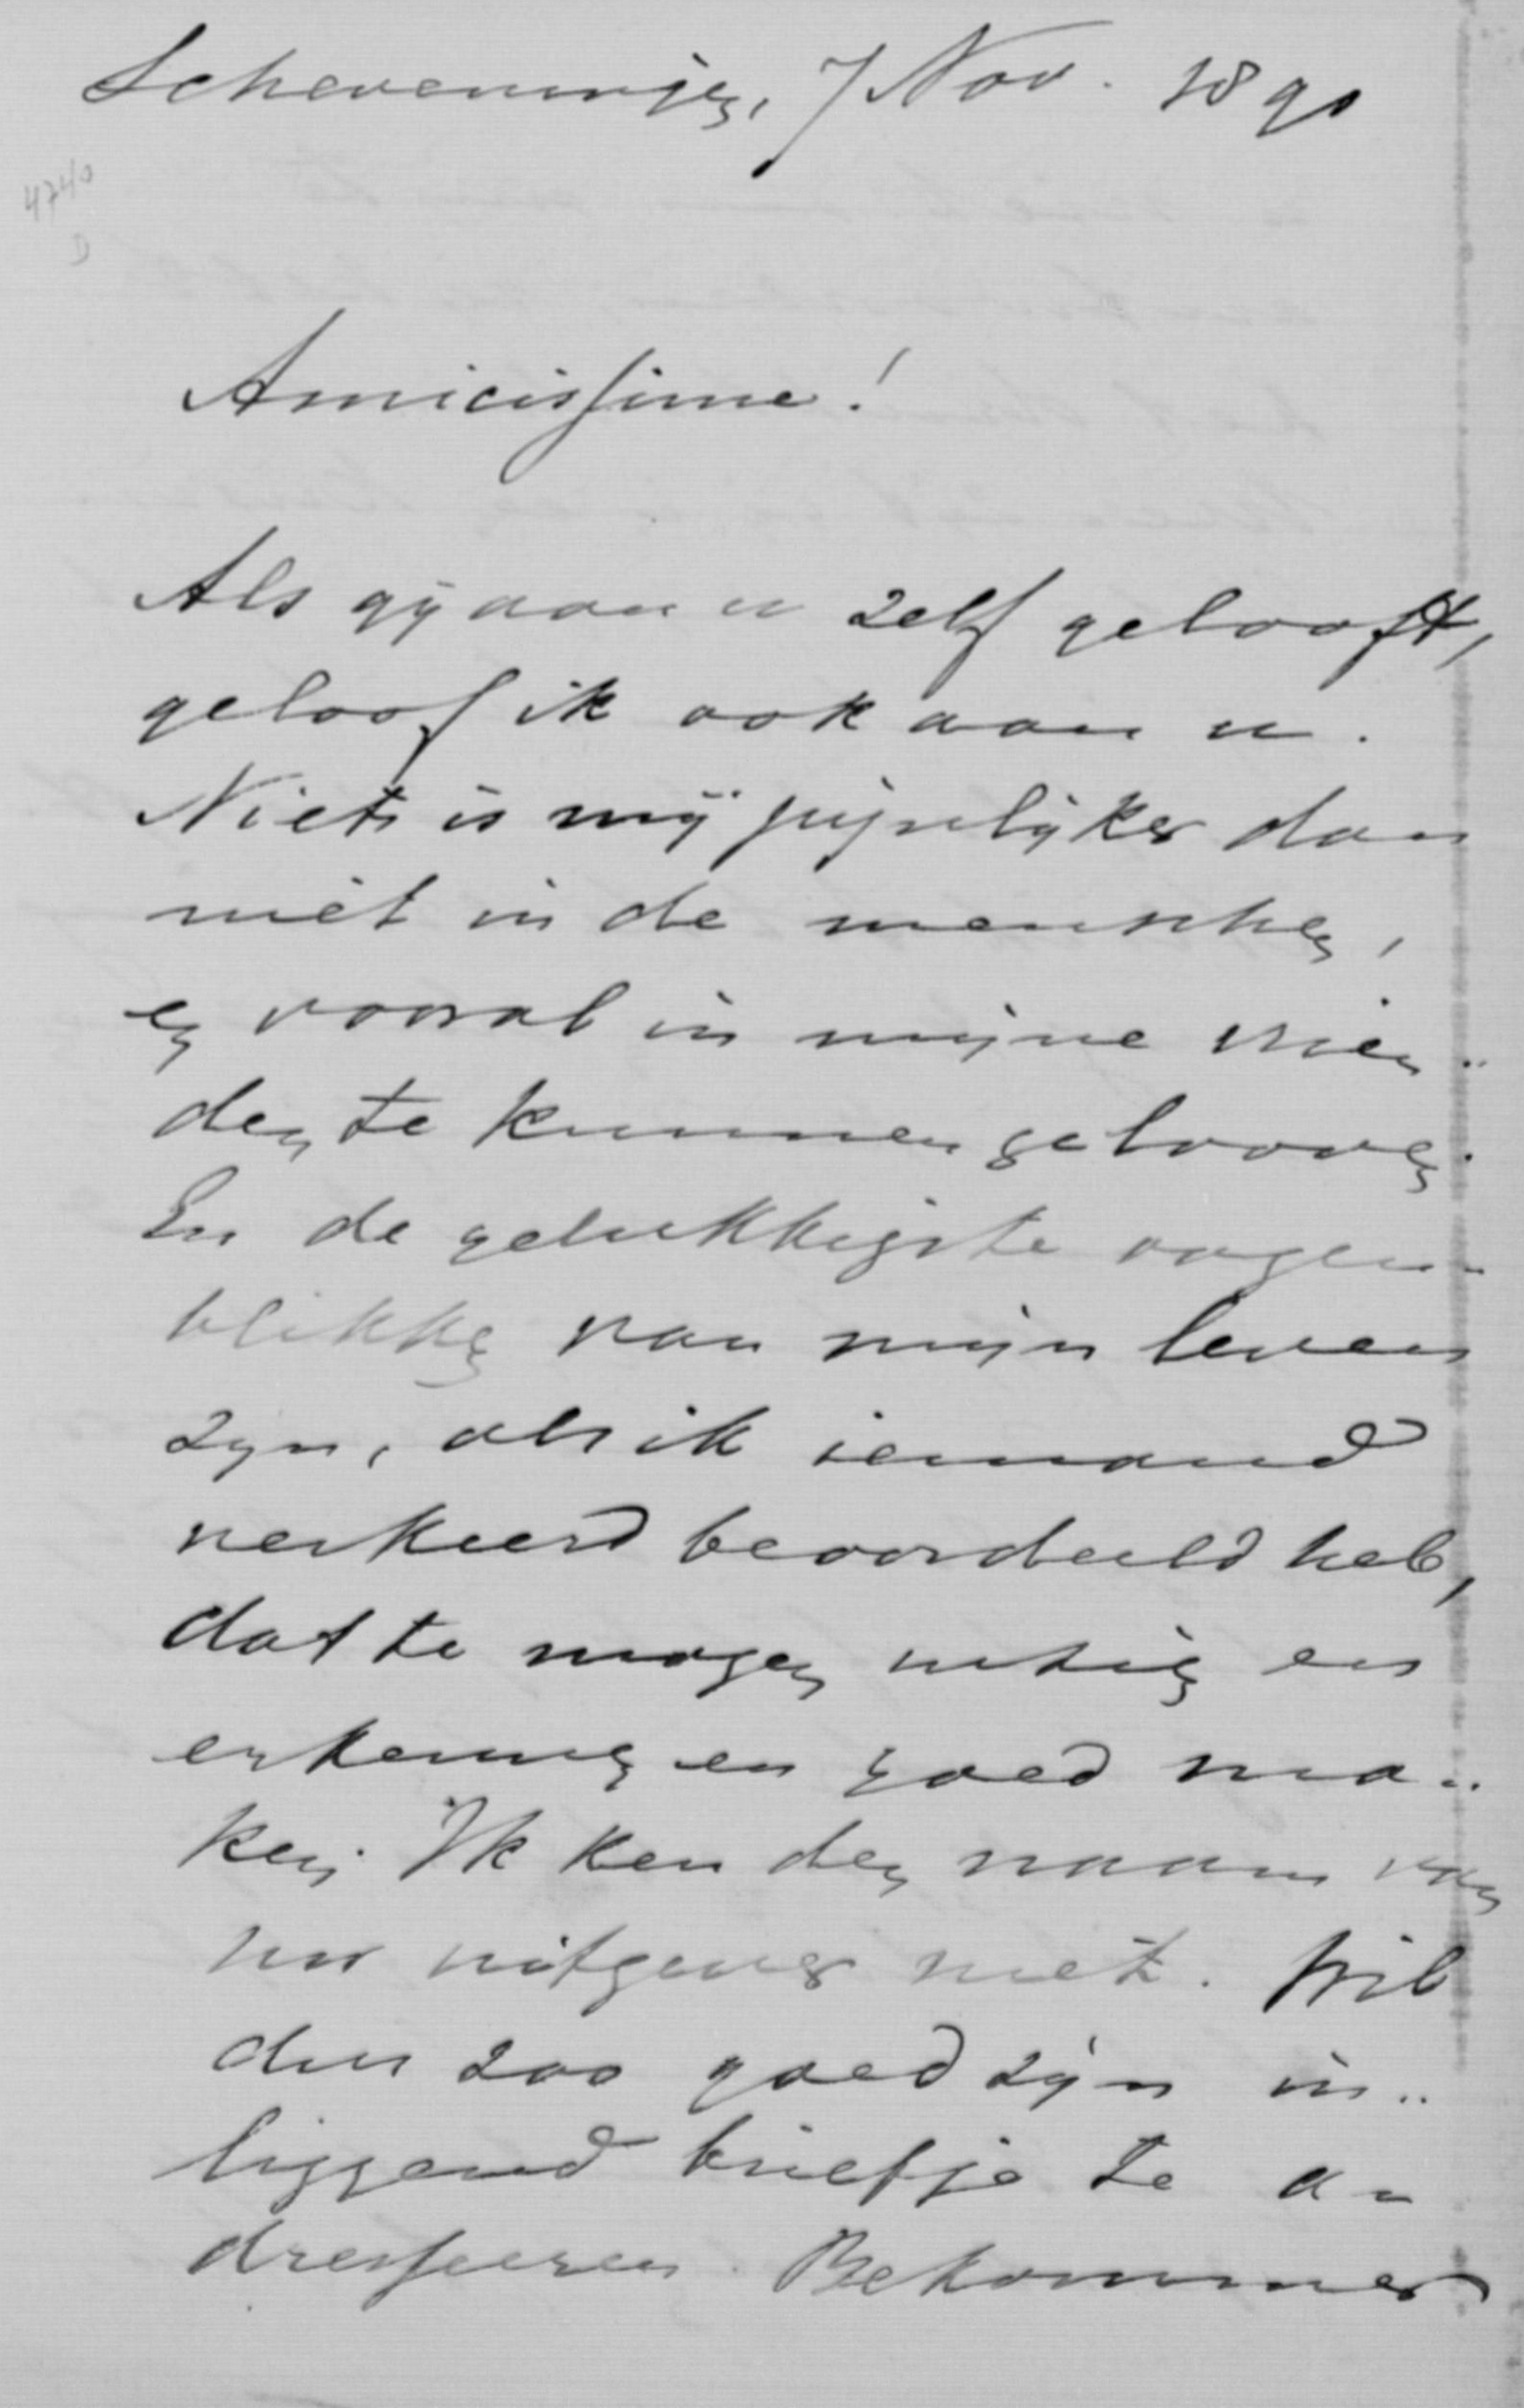 Scheveningen, 7 Nov. 1890
4740
D
Amicissime!
Als gij aan u zelf gelooft,
geloof ik ook aan u.
Niets is mij pijnlijker dan
niet in de menschen,
en vooral in mijne vrien-
den te kunnen gelooven.
En de gelukkigste oogen-
blikken van mijn leven
zijn, als ik iemand
verkeerd beoordeeld heb,
dat te mogen inzien en
erkennen en goed ma-
ken. Ik ken den naam van
uw uitgever niet. Wil
dus zoo goed zijn in-
liggend briefje te a-
dresseeren. Bekommer